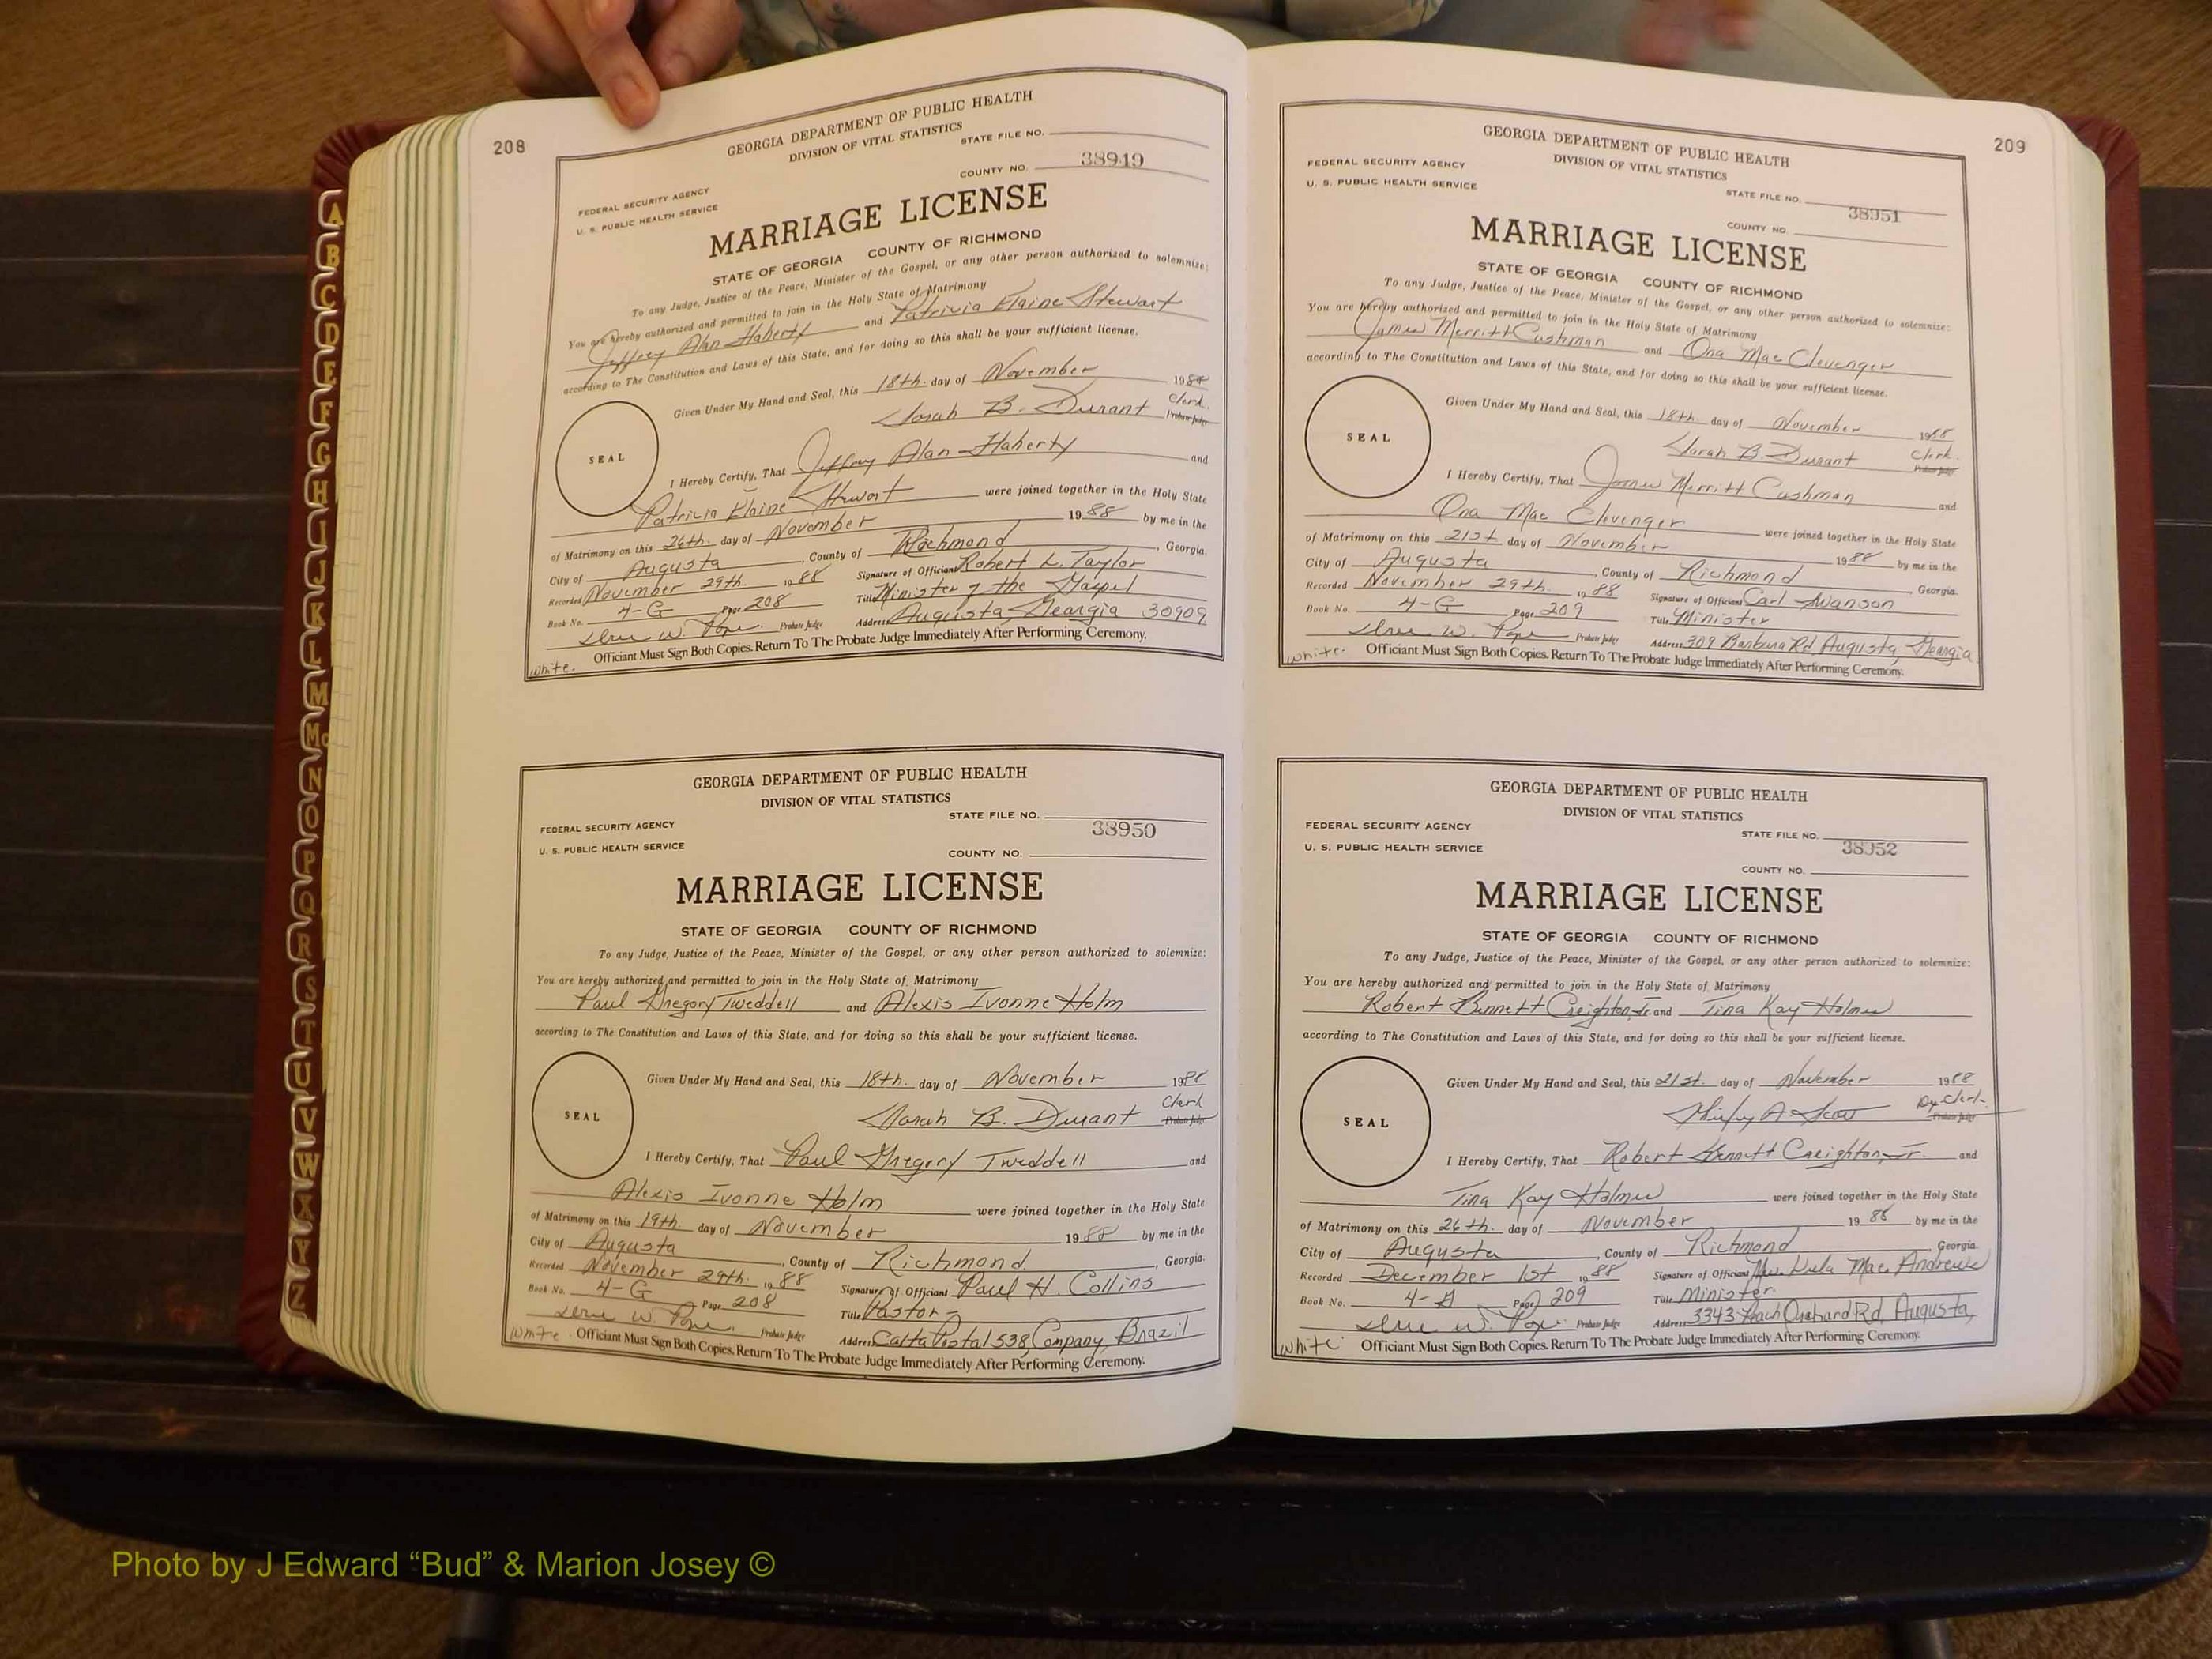 208
GEORGIA DEPARTMENT OF PUBLIC HEALTH
DIVISION OF VITAL STATISTICS
STATE FILE NO.
38949
COUNTY NO.
FEDERAL SECURITY AGENCY
U. S. PUBLIC HEALTH SERVICE
MARRIAGE LICENSE
STATE OF GEORGIA COUNTY OF RICHMOND
To any Judge, Justice of the Peace, Minister of the Gospel, or any other person authorized to solemnize:
You are hereby authorized and permitted to join in the Holy State of Matrimony
Jeffrey Alan Flaherty and Patricia Elaine Stewart
according to The Constitution and Laws of this State, and for doing so this shall be your sufficient license.
Given Under My Hand and Seal, this 18th. day of November 1988
Sarah B. Durant Clerk. Probate Judge
SEAL
I Hereby Certify, That Jeffrey Alan Flaherty and
Patricia Elaine Stewart were joined together in the Holy State
of Matrimony on this 26th. day of November 1988 by me in the
City of Augusta, County of Richmond, Georgia.
Recorded November 29th. 1988 Signature of Officiant Robert L. Taylor
Book No. 4-G Page 208 Title Minister of the Gospel
Probate Judge Address Augusta, Georgia 30909
Officiant Must Sign Both Copies. Return To The Probate Judge Immediately After Performing Ceremony.
white.
GEORGIA DEPARTMENT OF PUBLIC HEALTH
DIVISION OF VITAL STATISTICS
STATE FILE NO.
38950
FEDERAL SECURITY AGENCY
U. S. PUBLIC HEALTH SERVICE
COUNTY NO.
MARRIAGE LICENSE
STATE OF GEORGIA COUNTY OF RICHMOND
To any Judge, Justice of the Peace, Minister of the Gospel, or any other person authorized to solemnize:
You are hereby authorized and permitted to join in the Holy State of Matrimony
Paul Gregory Tweddell and Alexis Ivonne Holm
according to The Constitution and Laws of this State, and for doing so this shall be your sufficient license.
Given Under My Hand and Seal, this 18th. day of November 1988
Sarah B. Durant Clerk Probate Judge
SEAL
I Hereby Certify, That Paul Gregory Tweddell and
Alexis Ivonne Holm were joined together in the Holy State
of Matrimony on this 19th. day of November 1988 by me in the
City of Augusta, County of Richmond, Georgia.
Recorded November 29th. 1988 Signature of Officiant Paul H. Collins
Book No. 4-G Page 208 Title Pastor
Probate Judge Address Postal 538, Brazil
white Officiant Must Sign Both Copies. Return To The Probate Judge Immediately After Performing Ceremony.
209
GEORGIA DEPARTMENT OF PUBLIC HEALTH
DIVISION OF VITAL STATISTICS
FEDERAL SECURITY AGENCY
U. S. PUBLIC HEALTH SERVICE
STATE FILE NO.
38951
COUNTY NO.
MARRIAGE LICENSE
STATE OF GEORGIA COUNTY OF RICHMOND
To any Judge, Justice of the Peace, Minister of the Gospel, or any other person authorized to solemnize:
You are hereby authorized and permitted to join in the Holy State of Matrimony
James Merritt Cushman and Ona Mae Clevenger
according to The Constitution and Laws of this State, and for doing so this shall be your sufficient license.
Given Under My Hand and Seal, this 18th. day of November 1988
Sarah B. Durant Clerk. Probate Judge
SEAL
I Hereby Certify, That James Merritt Cushman and
Ona Mae Clevenger were joined together in the Holy State
of Matrimony on this 21st day of November 1988 by me in the
City of Augusta, County of Richmond, Georgia.
Recorded November 29th. 1988 Signature of Officiant Carl Swanson
Book No. 4-G Page 209 Title Minister
Probate Judge Address 309 Barbara Rd, Augusta, Georgia
white. Officiant Must Sign Both Copies. Return To The Probate Judge Immediately After Performing Ceremony.
GEORGIA DEPARTMENT OF PUBLIC HEALTH
DIVISION OF VITAL STATISTICS
FEDERAL SECURITY AGENCY
U. S. PUBLIC HEALTH SERVICE
STATE FILE NO.
38952
COUNTY NO.
MARRIAGE LICENSE
STATE OF GEORGIA COUNTY OF RICHMOND
To any Judge, Justice of the Peace, Minister of the Gospel, or any other person authorized to solemnize:
You are hereby authorized and permitted to join in the Holy State of Matrimony
Robert Bennett Creighton, Jr. and Tina Kay Holmes
according to The Constitution and Laws of this State, and for doing so this shall be your sufficient license.
Given Under My Hand and Seal, this 21st. day of November 1988
Shirley A. Dy. Clerk. Probate Judge
SEAL
I Hereby Certify, That Robert Bennett Creighton, Jr. and
Tina Kay Holmes were joined together in the Holy State
of Matrimony on this 26th. day of November 1988 by me in the
City of Augusta, County of Richmond Georgia.
Recorded December 1st 1988 Signature of Officiant Lula Mae Andrews
Book No. 4-G Page 209 Title Minister
Probate Judge Address 3343 Peach Orchard Rd, Augusta,
white Officiant Must Sign Both Copies. Return To The Probate Judge Immediately After Performing Ceremony.
A
B
C
D
E
F
G
H
I
J
K
L
M
Mc
N
O
P
Q
R
S
T
U
V
W
X
Y
Z
Photo by J Edward “Bud” & Marion Josey ©